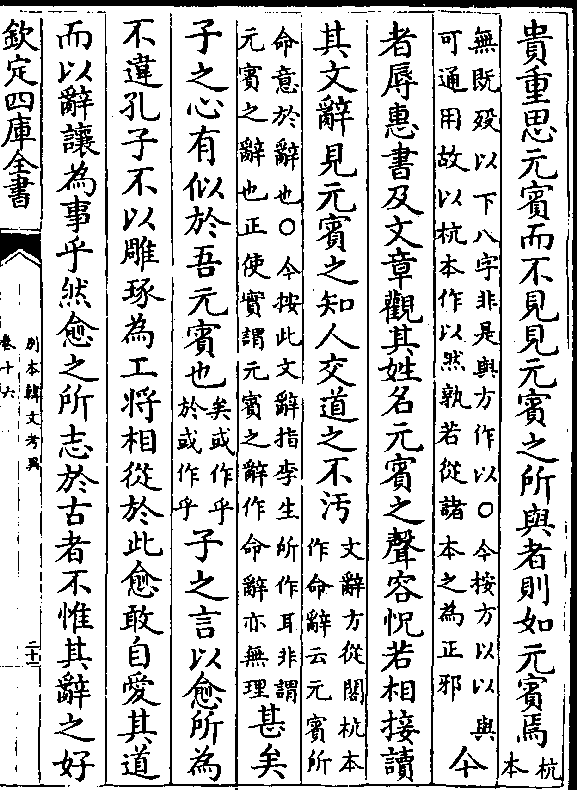 貴重思元賓而不見見元賓之所與者則如元賓焉杭本
無既歿以下八字非是與方作以〇今按方以以與
可通用故以杭本作以然孰若從諸本之為正邪
今
者辱惠書及文章觀其姓名元賓之聲容怳若相接讀
其文辭見元賓之知人交道之不汚
文辭方從閣杭本
作命辭云元賓所
命意於辭也〇今按此文辭指李生所作耳非謂
元賓之辭也正使實謂元賓之辭作命辭亦無理
甚矣
子之心有似於吾元賓也
矣或作乎
於或作乎
子之言以愈所為
不違孔子不以雕琢為工將相從於此愈敢自愛其道
而以辭讓為事乎然愈之所志於古者不惟其辭之好
欽定四庫全書
別本韓文考異
卷十六